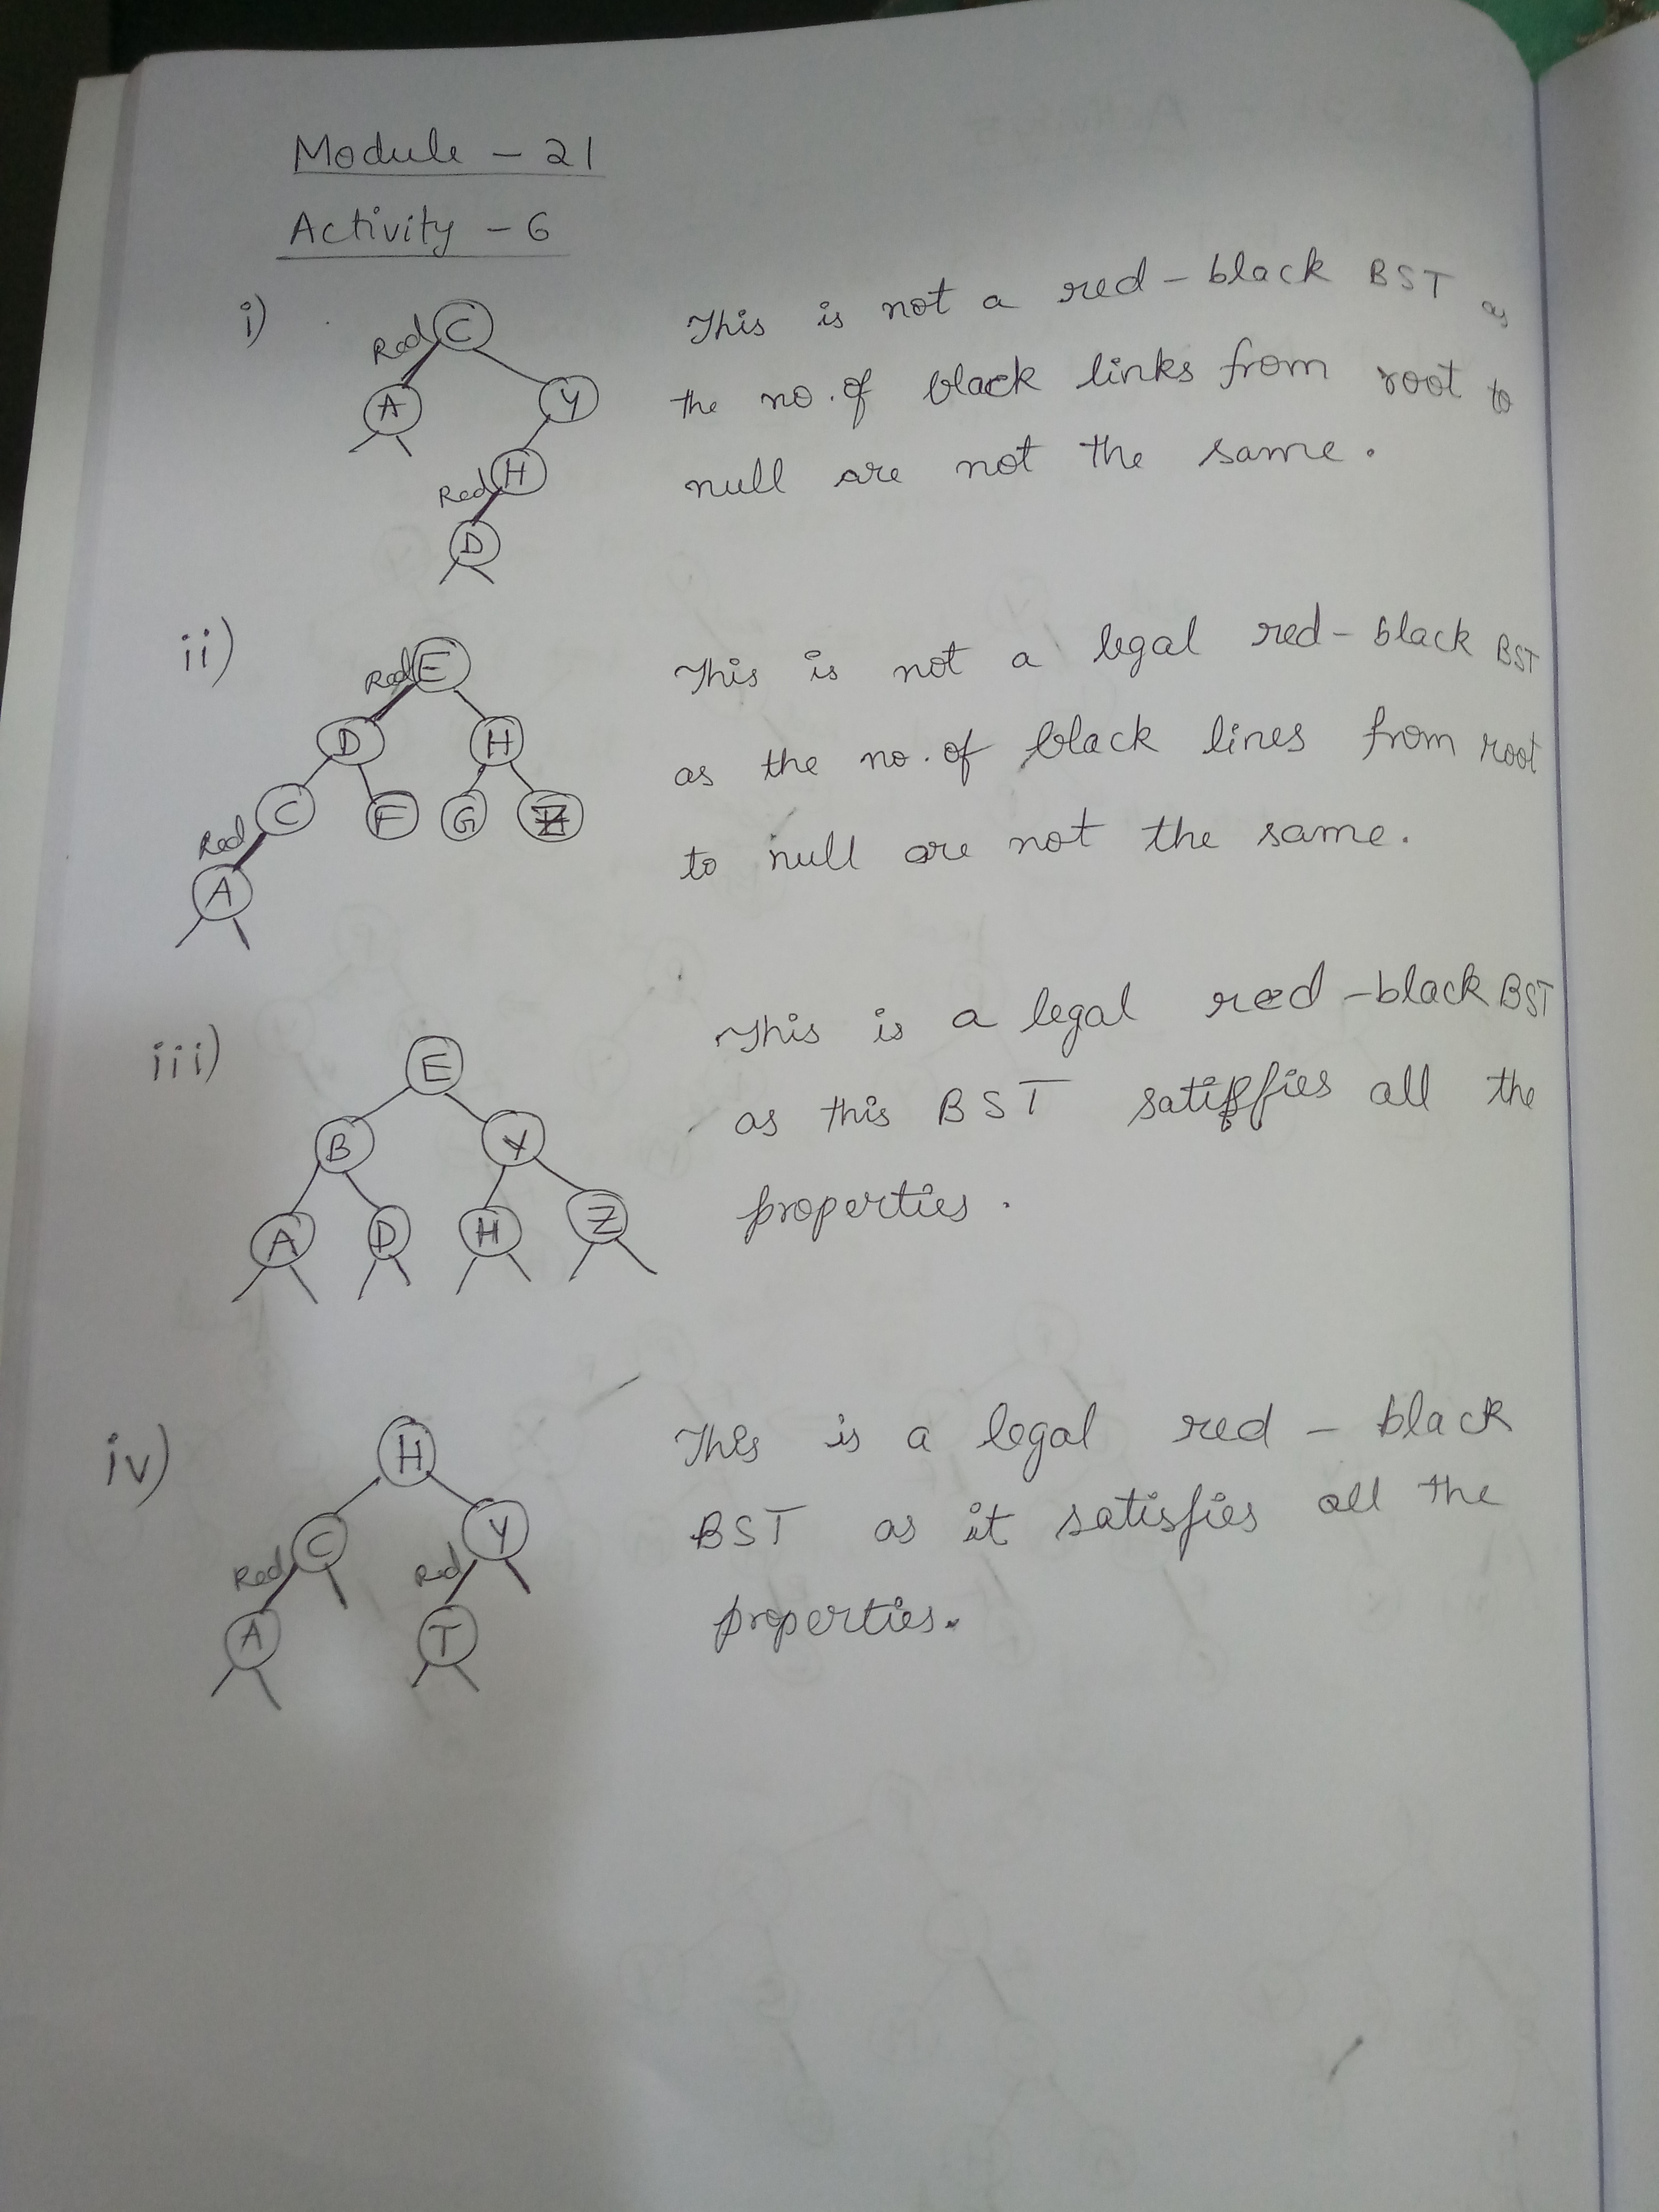 Module - 21
Activity - 6
i)
Red C
A
Y
Red H
D
This is not a red-black BST as
the no. of black links from root to
null are not the same.
ii)
Red E
D
H
C
F
G
Red
A
This is not a legal red-black BST
as the no. of black lines from root
to null are not the same.
iii)
E
B
Y
A
D
H
Z
This is a legal red-black BST
as this BST satisfies all the
properties.
iv)
H
C
Y
Red
Red
A
T
This is a legal red - black
BST as it satisfies all the
properties.